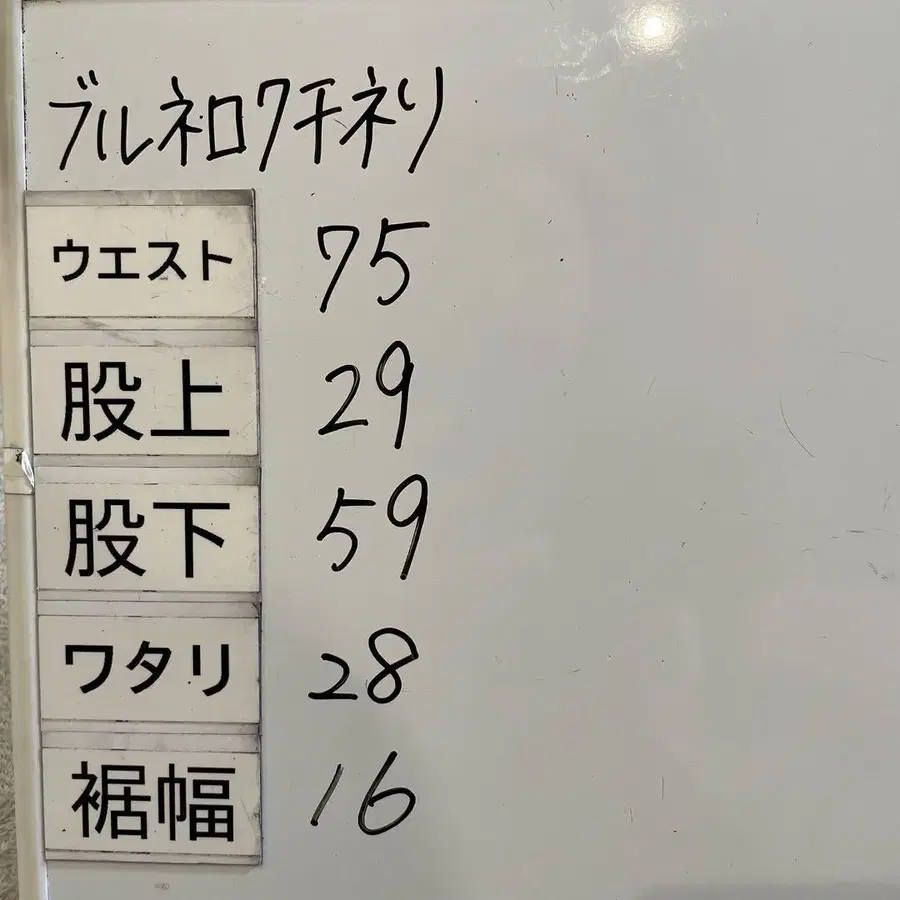 ブルネロクチネリ
ウエスト 75
股上 29
股下 59
ワタリ 28
裾幅 16